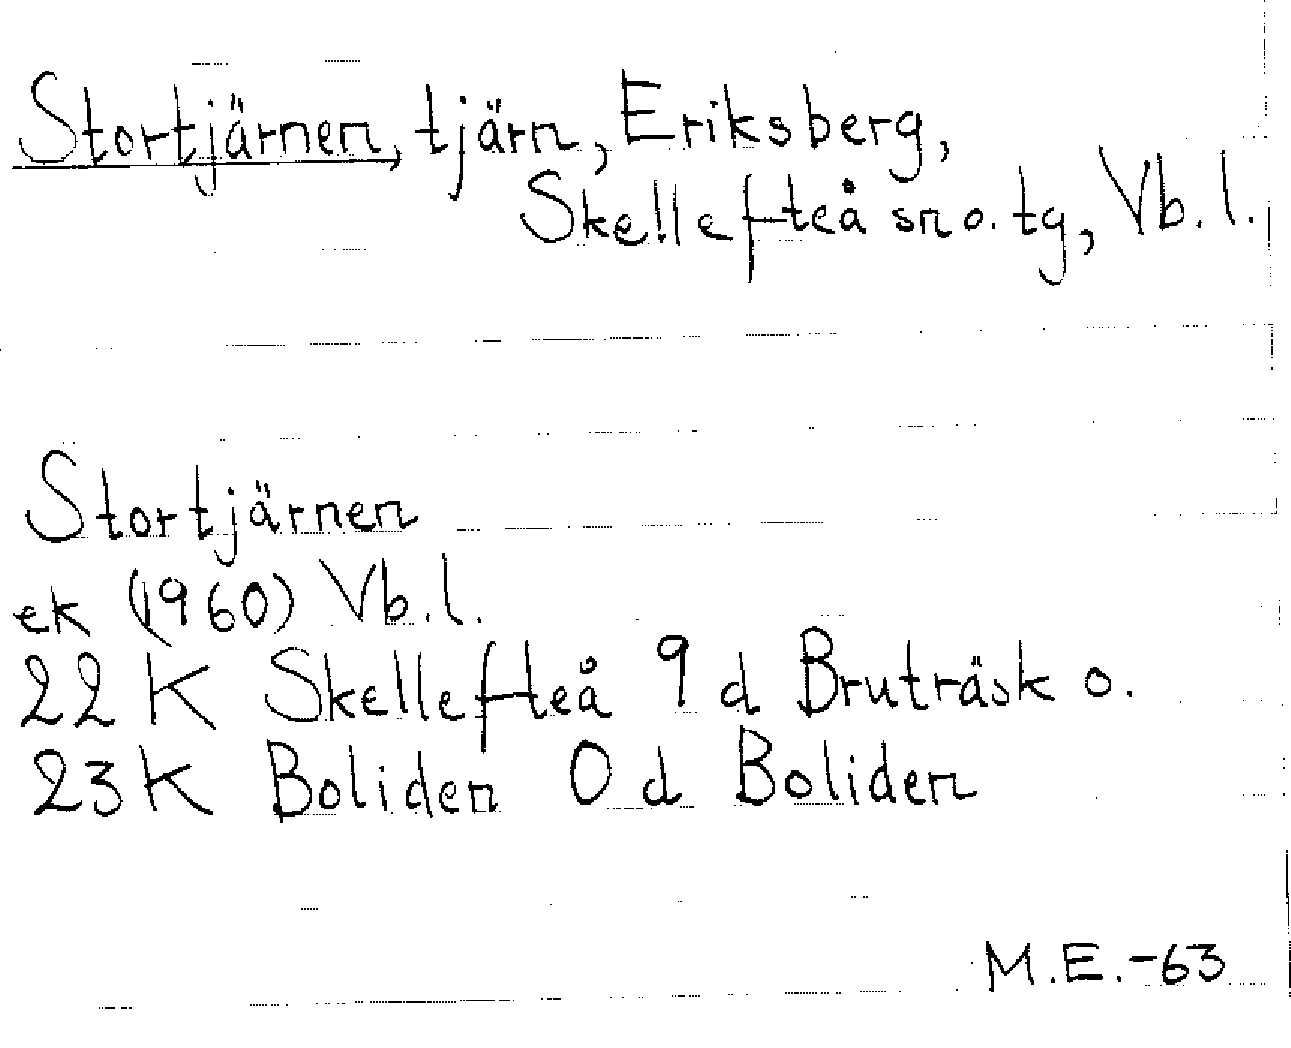 Stortjärnen, tjärn, Eriksberg,
Skellefteå sn o. tg, Vb. l.
Stortjärnen
ek (1960) Vb. l.
22 K Skellefteå 9 d Bruträsk o.
23 K Boliden 0 d Boliden
M.E.-63